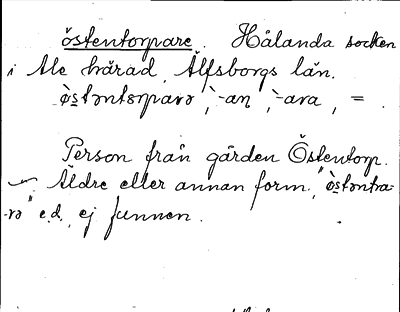 östentorpare. Hålanda socken
i Ale härad, Älfsborgs län.
ò̱stəntɔrparə, -an, -ara, =.
Person från gården Östentorp.
— Äldre eller annan form, "ò̱stəntra-
rə" e.d., ej funnen.